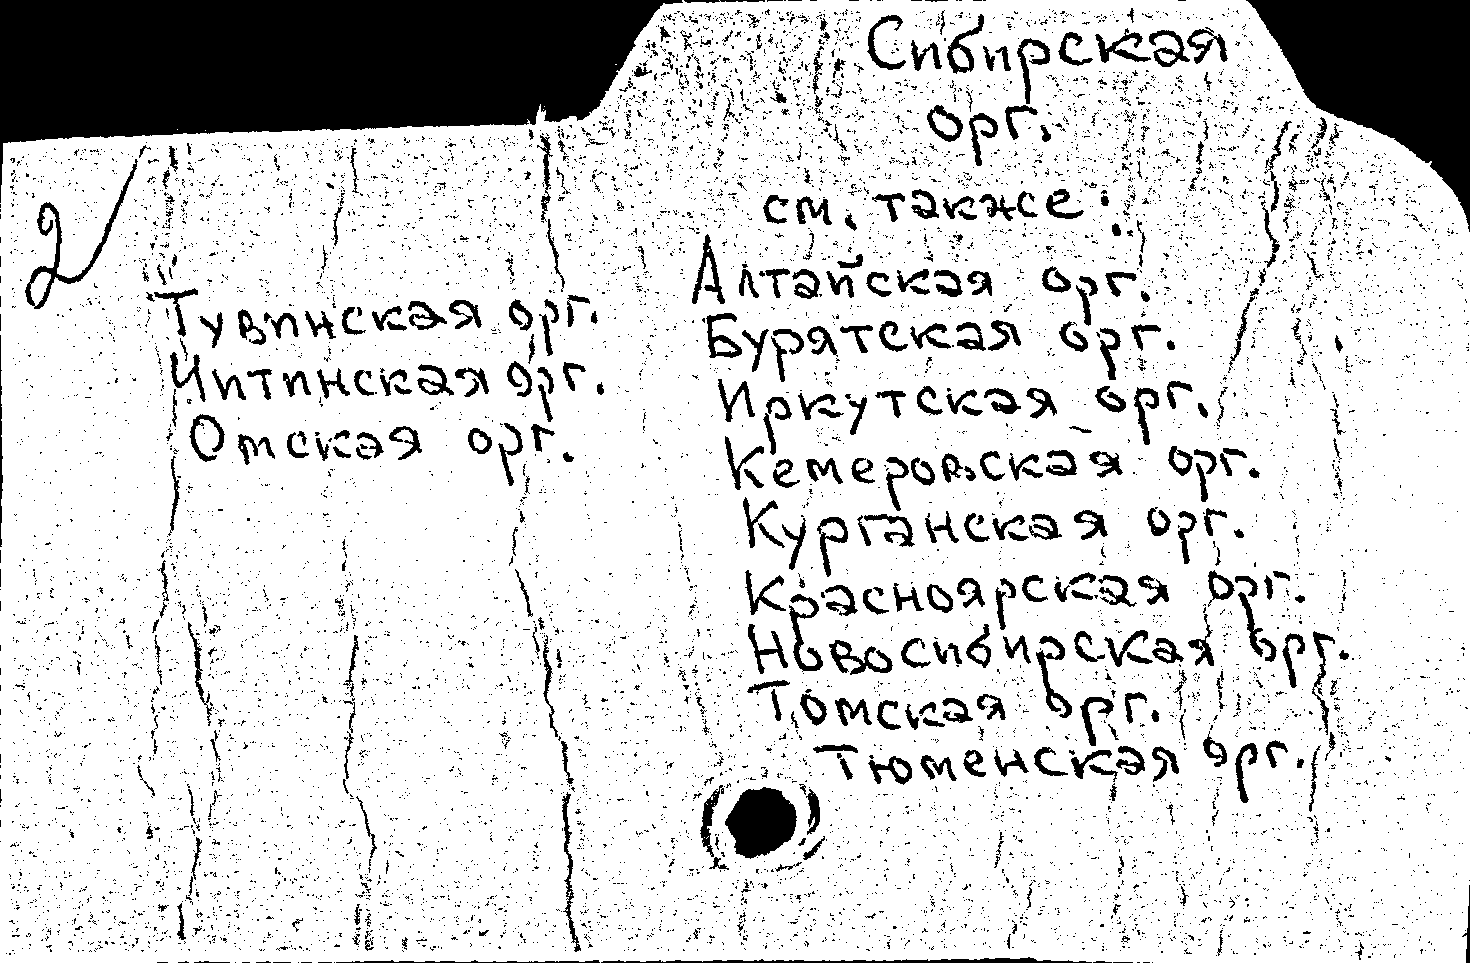 Сибирская
орг.
см. также:
Алтайская орг.
Бурятская орг.
Иркутская орг.
Кемеровская орг.
Курганская орг.
Красноярская орг.
Новосибирская орг.
Томская орг.
Тюменская орг.
2
Тувинская орг.
Читинская орг.
Омская орг.